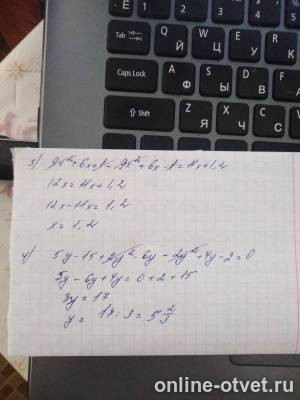 Tab
Й
Ц
У
К
Е
Caps Lock
Ф
Ы
В
А
Shift
Я
Ч
С
3) 9x²+6x+1-9x²+6x-1=11x+1,2
12x=11x+1,2
12x-11x=1,2
x=1,2
4) 5y-15+2y²-6y-2y²+4y-2=0
5y-6y+4y=0+2+15
3y=17
y= 17:3=5 2/3
online-otvet.ru